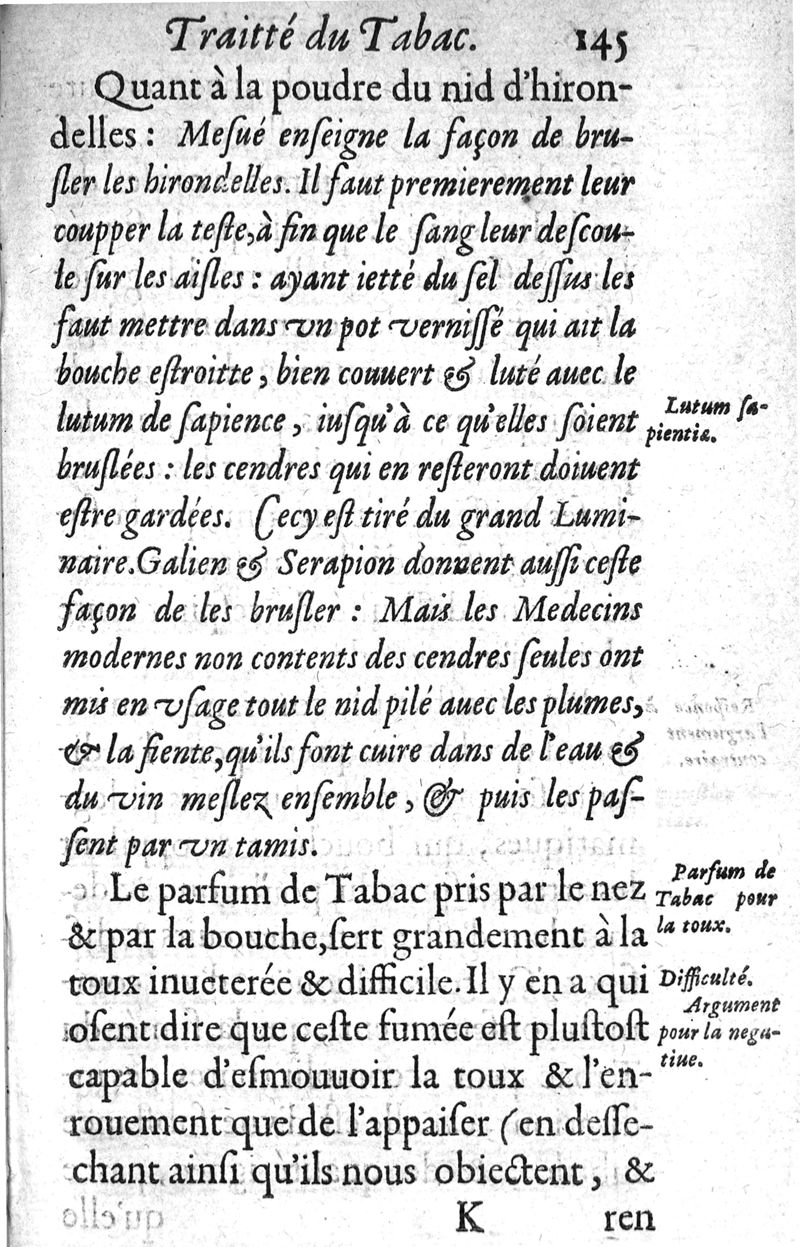 Traitté du Tabac. 145
Quant à la poudre du nid d'hiron-
delles : Meſué enſeigne la façon de bru-
ſler les hirondelles. Il faut premierement leur
coupper la teſte, à fin que le ſang leur deſcou-
le ſur les aiſles : ayant ietté du ſel deſſus les
faut mettre dans vn pot verniſſé qui ait la
bouche eſtroitte, bien couuert & luté auec le
lutum de ſapience, iuſqu'à ce qu'elles ſoient
Lutum ſa-
pientiæ.
bruſlées : les cendres qui en reſteront doiuent
eſtre gardées. Cecy eſt tiré du grand Lumi-
naire. Galien & Serapion donnent auſſi ceſte
façon de les bruſler : Mais les Medecins
modernes non contents des cendres ſeules ont
mis en vſage tout le nid pilé auec les plumes,
& la fiente, qu'ils font cuire dans de l'eau &
du vin meſlez enſemble, & puis les paſ-
ſent par vn tamis.
Le parfum de Tabac pris par le nez
Parfum de
Tabac pour
la toux.
& par la bouche, ſert grandement à la
toux inueterée & difficile. Il y en a qui
Difficulté.
Argument
pour la nega-
tiue.
oſent dire que ceſte fumée eſt pluſtoſt
capable d'eſmouuoir la toux & l'en-
rouement que de l'appaiſer (en deſſe-
chant ainſi qu'ils nous obiectent, &
K ren